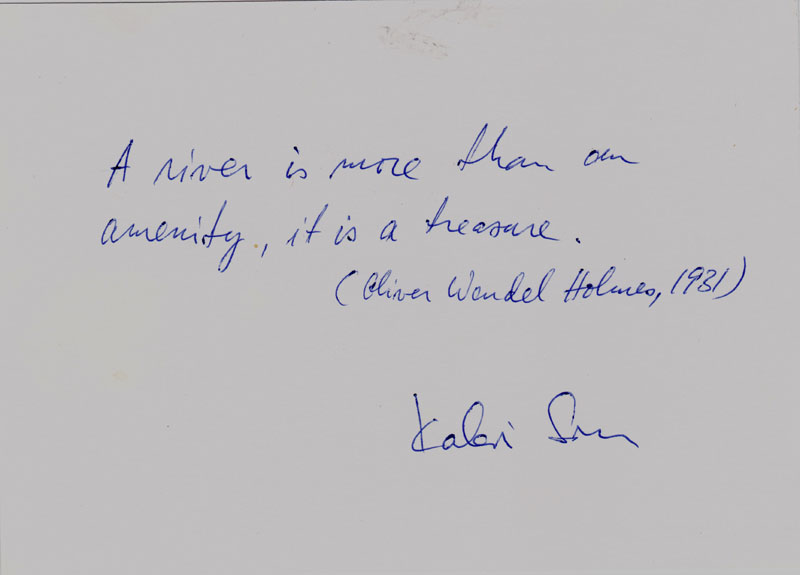 A river is more than an
amenity, it is a treasure.
(Oliver Wendel Holmes, 1931)